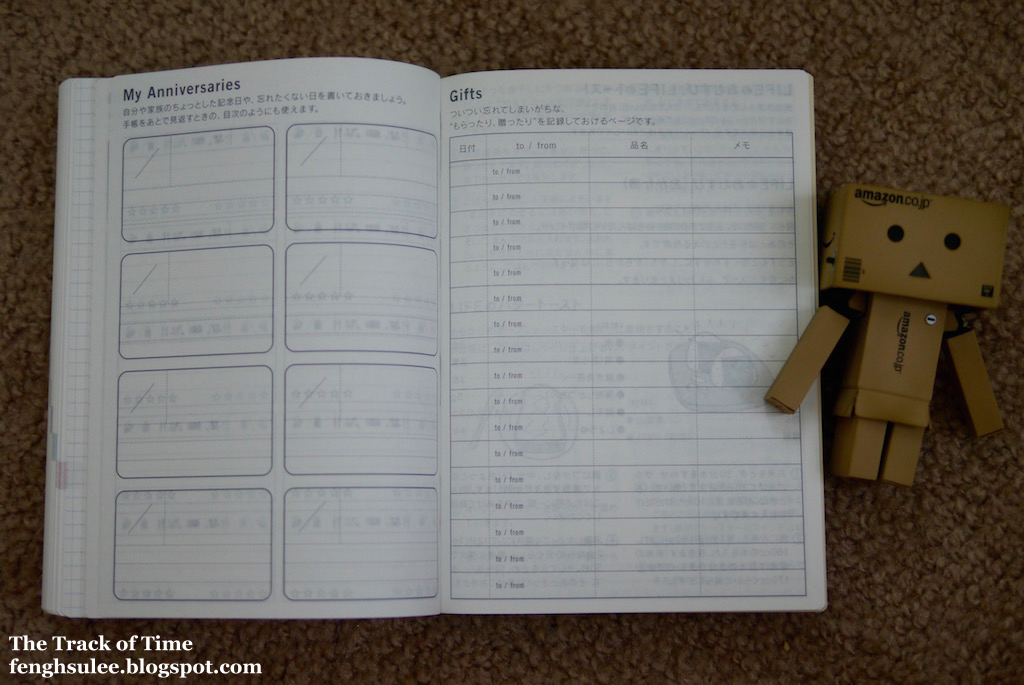 My Anniversaries
自分や家族のちょっとした記念日や、忘れたくない日を書いておきましょう。
手帳をあとで見返すときの、目次のようにも使えます。
Gifts
ついつい忘れてしまいがちな、
“もらったり、贈ったり”を記録しておけるページです。
日付 to / from 品名 メモ
to / from
to / from
to / from
to / from
to / from
to / from
to / from
to / from
to / from
to / from
to / from
to / from
to / from
to / from
to / from
to / from
to / from
amazon.co.jp
amazon.co.jp
The Track of Time
fenghsulee.blogspot.com